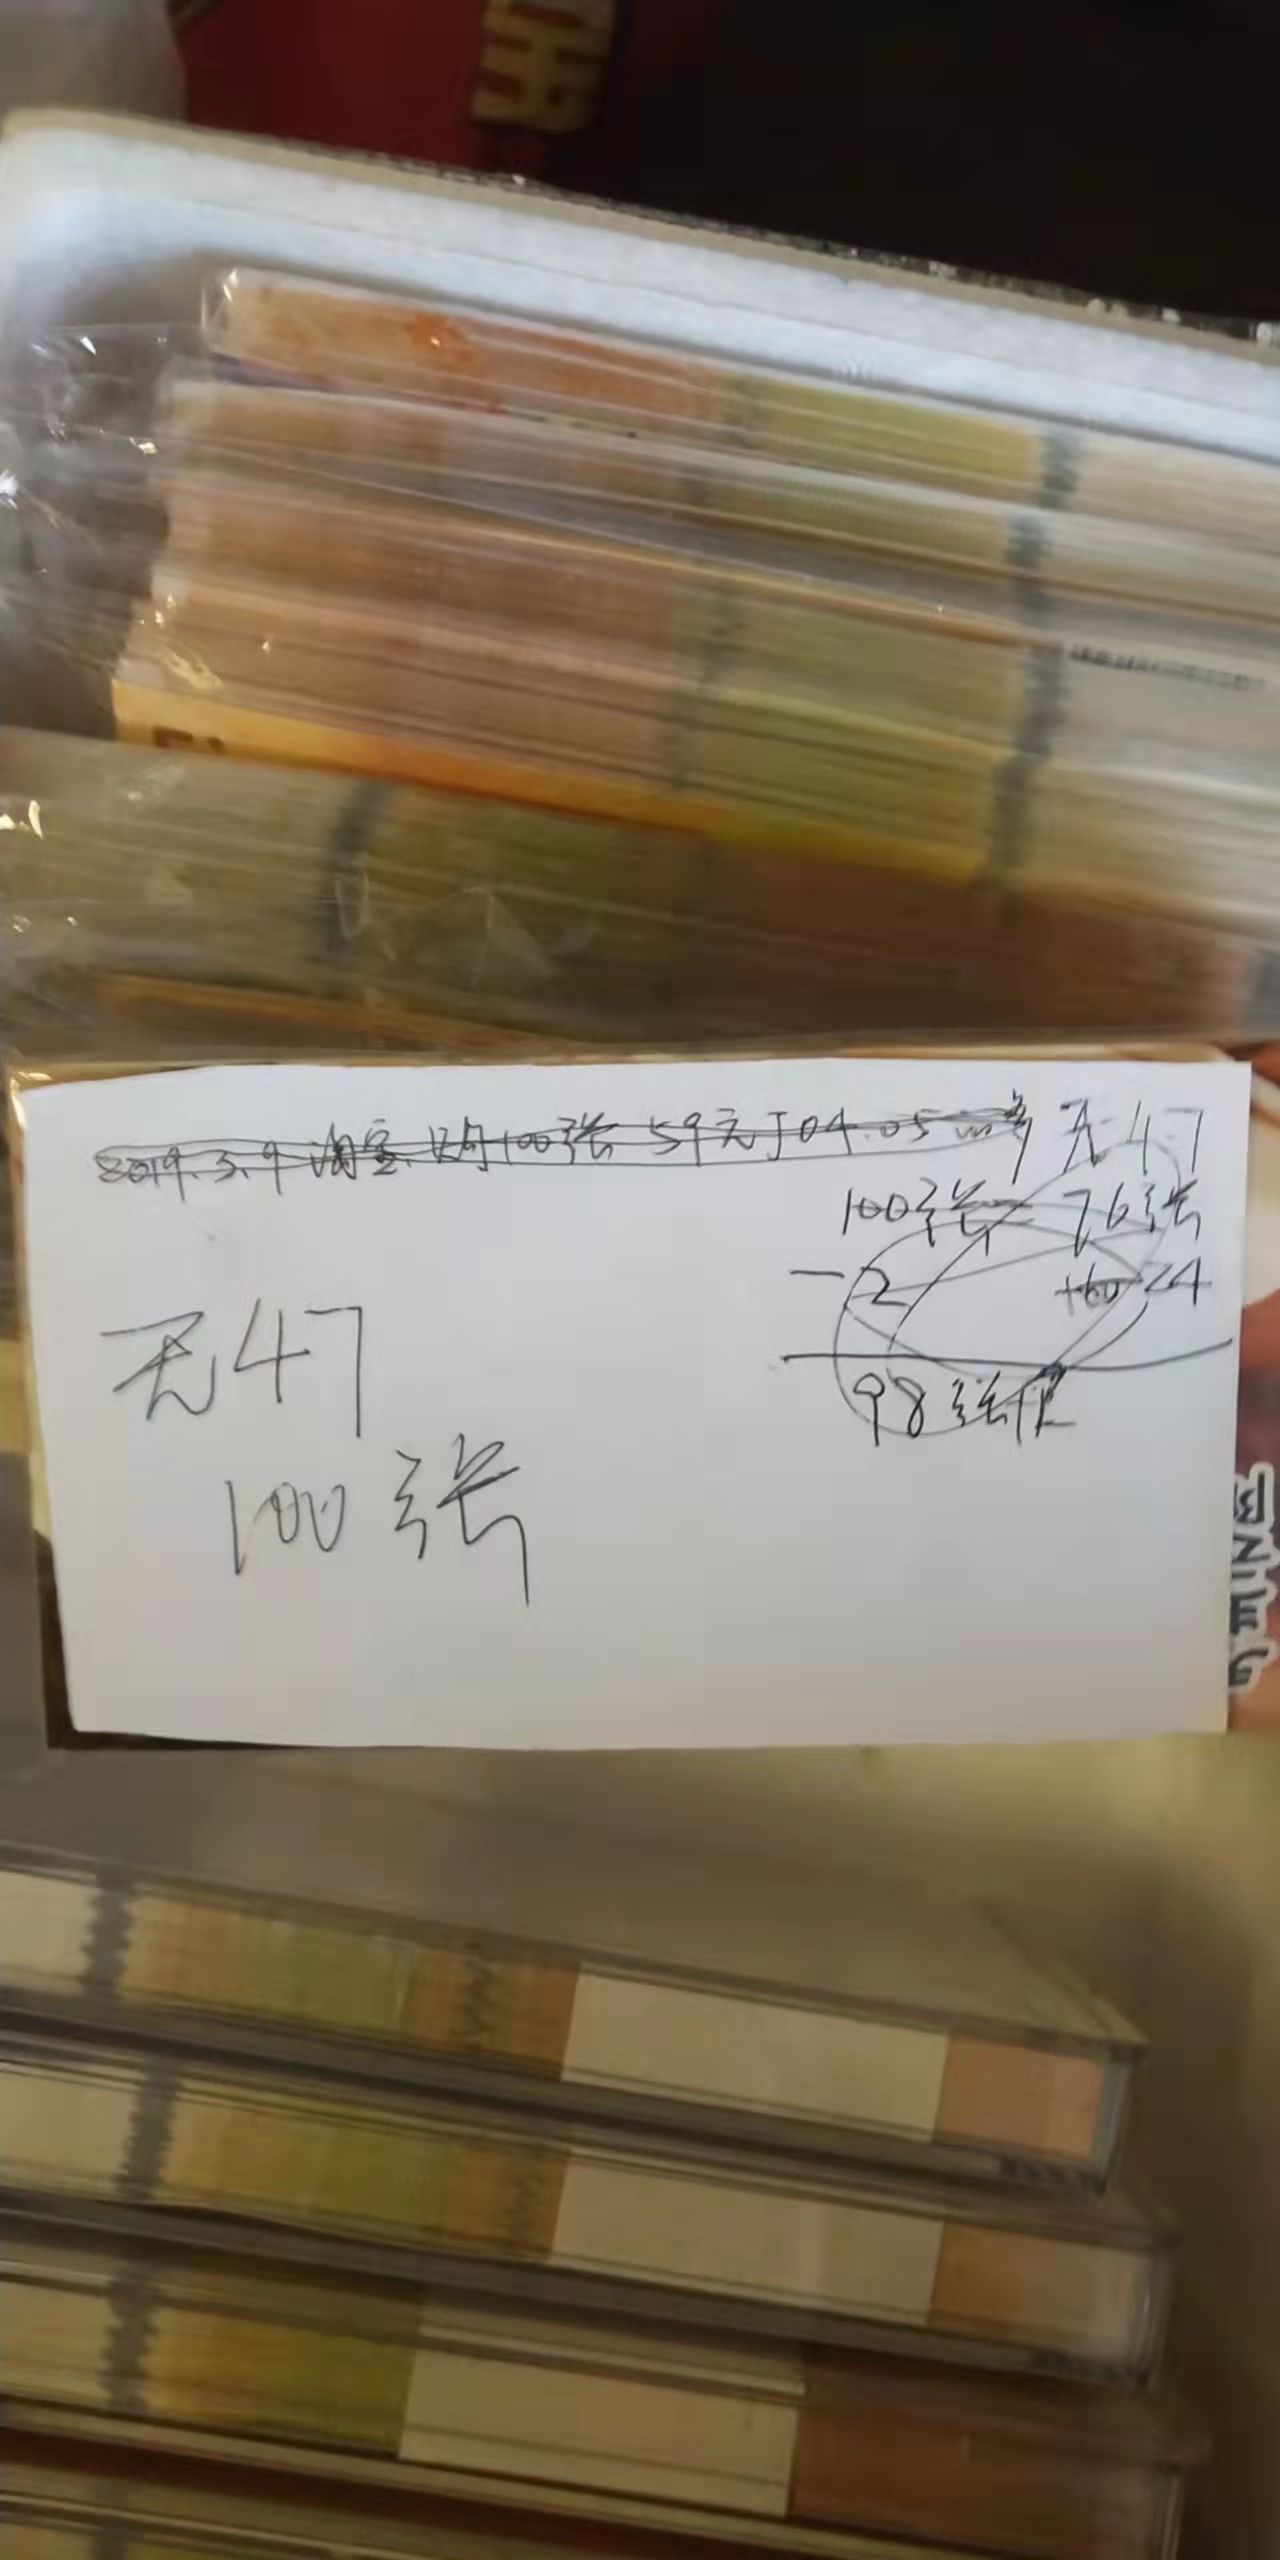 2019.3.9 淘宝 购100张 59元于04.05
无47
100张 = 76张
-2 +60 24
98张
无47
100张